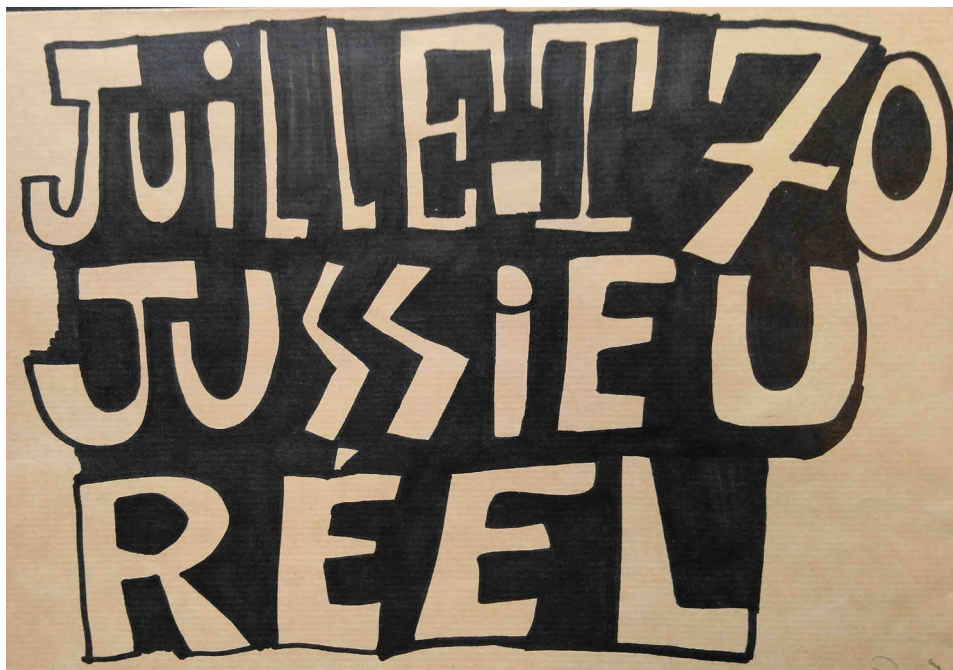 JUiLLET 70
JUSSiEU
RÉEL